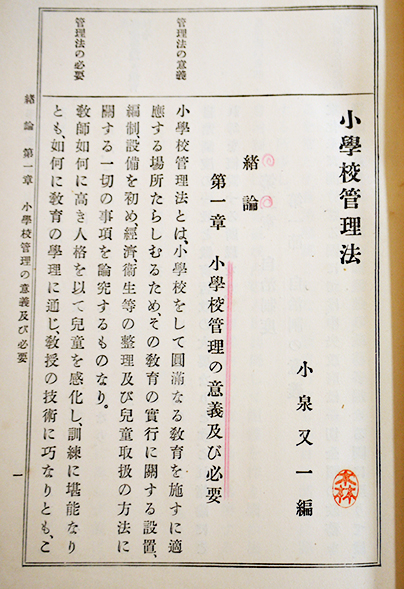 小學校管理法
小泉又一編
緒論
第一章　小學校管理の意義及び必要
管理法の意義
小學校管理法とは、小學校をして圓滿なる教育を施すに適
應する場所たらしむるため、その教育の實行に關する設置、
編制、設備を初め、經濟、衛生等の整理及び兒童取扱の方法に
關する一切の事項を論究するものなり。
管理法の必要
教師如何に高き人格を以て兒童を感化し、訓練に堪能なり
とも、如何に教育の學理に通じ、教授の技術に巧なりとも、こ
緒論　第一章　小學校管理の意義及び必要
一